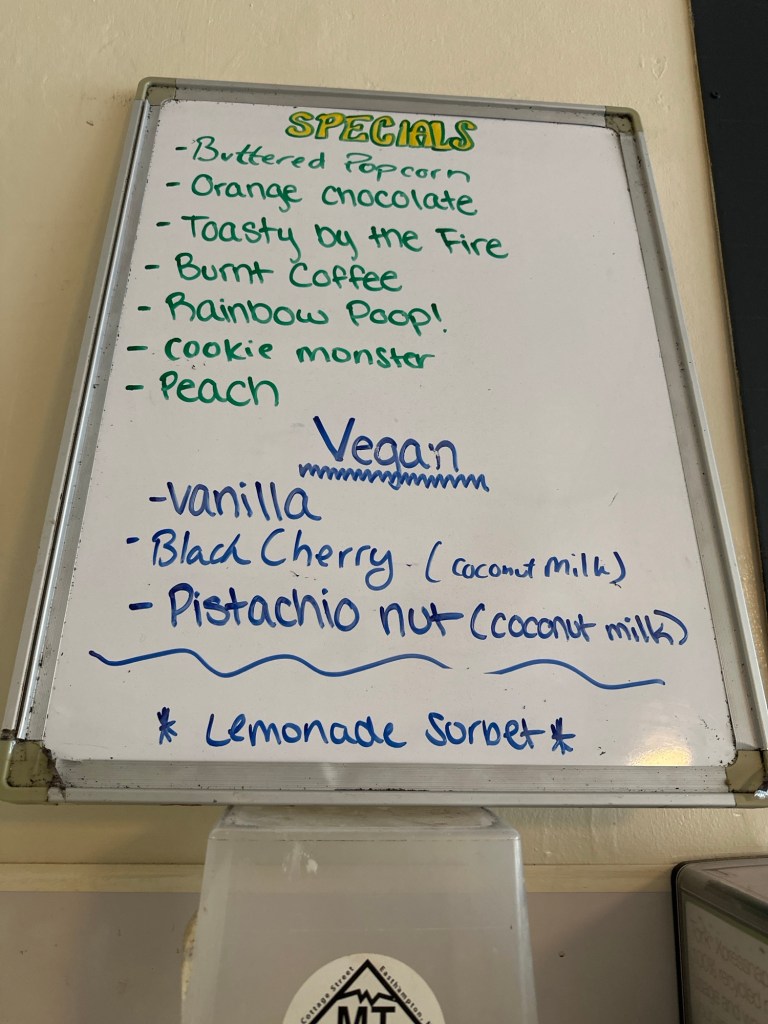 SPECIALS
- Buttered Popcorn
- Orange chocolate
- Toasty by the Fire
- Burnt Coffee
- Rainbow Poop!
- Cookie monster
- Peach
Vegan
- Vanilla
- Black Cherry (coconut milk)
- Pistachio nut (coconut milk)
* Lemonade Sorbet *
Cottage Street Easthampton,
MT